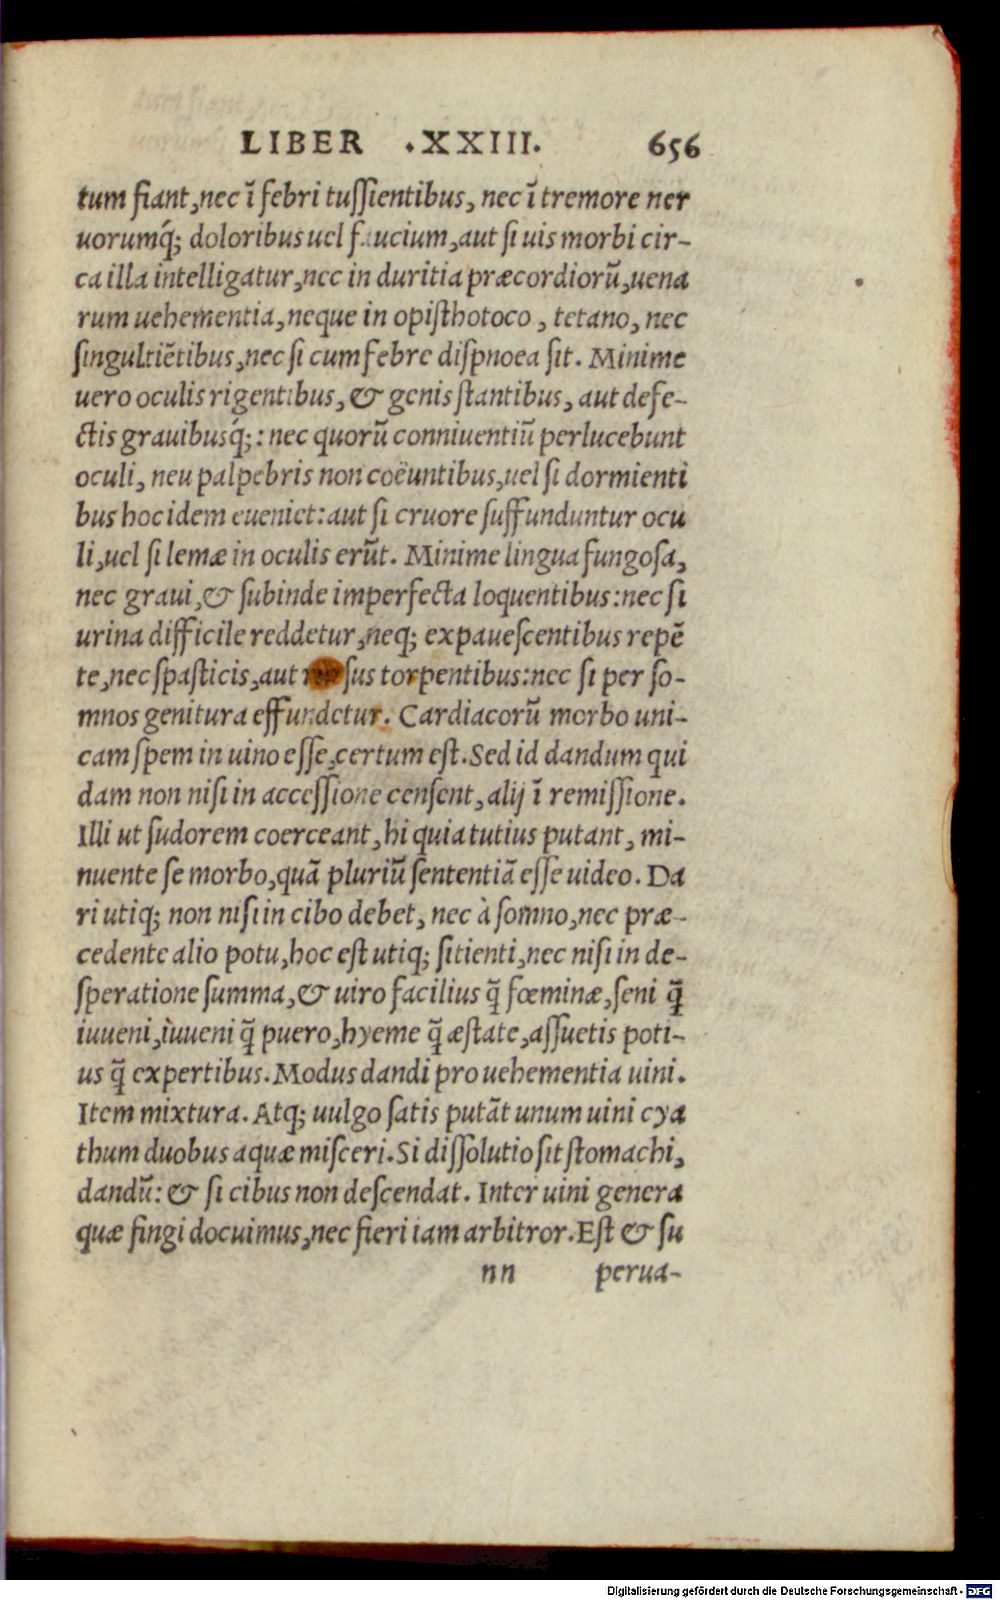 LIBER .XXIII. 656
tum fiant, nec ī febri tuſſientibus, nec ī tremore ner
uorumq́; doloribus uel faucium, aut ſi uis morbi cir-
ca illa intelligatur, nec in duritia præcordiorū, uena
rum uehementia, neque in opiſthotoco, tetano, nec
ſingultiētibus, nec ſi cum febre diſpnoea ſit. Minime
uero oculis rigentibus, & genis ſtantibus, aut defe-
ctis grauibusq́;: nec quorū conniuentiū perlucebunt
oculi, neu palpebris non coëuntibus, uel ſi dormienti
bus hoc idem eueniet: aut ſi cruore ſuffunduntur ocu
li, uel ſi lemæ in oculis erūt. Minime lingua fungoſa,
nec graui, & ſubinde imperfecta loquentibus: nec ſi
urina difficile reddetur, neq; expaueſcentibus repē
te, nec ſpaſticis, aut rurſus torpentibus: nec ſi per ſo-
mnos genitura effundetur. Cardiacorū morbo uni-
cam ſpem in uino eſſe, certum eſt. Sed id dandum qui
dam non niſi in acceſſione cenſent, alij ī remiſſione.
Illi ut ſudorem coerceant, hi quia tutius putant, mi-
nuente ſe morbo, quā pluriū ſententiā eſſe uideo. Da
ri utiq; non niſi in cibo debet, nec à ſomno, nec præ-
cedente alio potu, hoc eſt utiq; ſitienti, nec niſi in de-
ſperatione ſumma, & uiro facilius q̄ fœminæ, ſeni q̄
iuueni, iùueni q̄ puero, hyeme q̄ æſtate, aſſuetis poti-
us q̄ expertibus. Modus dandi pro uehementia uini.
Item mixtura. Atq; uulgo ſatis putāt unum uini cya
thum duobus aquæ miſceri. Si diſſolutio ſit ſtomachi,
dandū: & ſi cibus non deſcendat. Inter uini genera
quæ fingi docuimus, nec fieri iam arbitror. Eſt & ſu
nn perua-
Digitalisierung gefördert durch die Deutsche Forschungsgemeinschaft - DFG